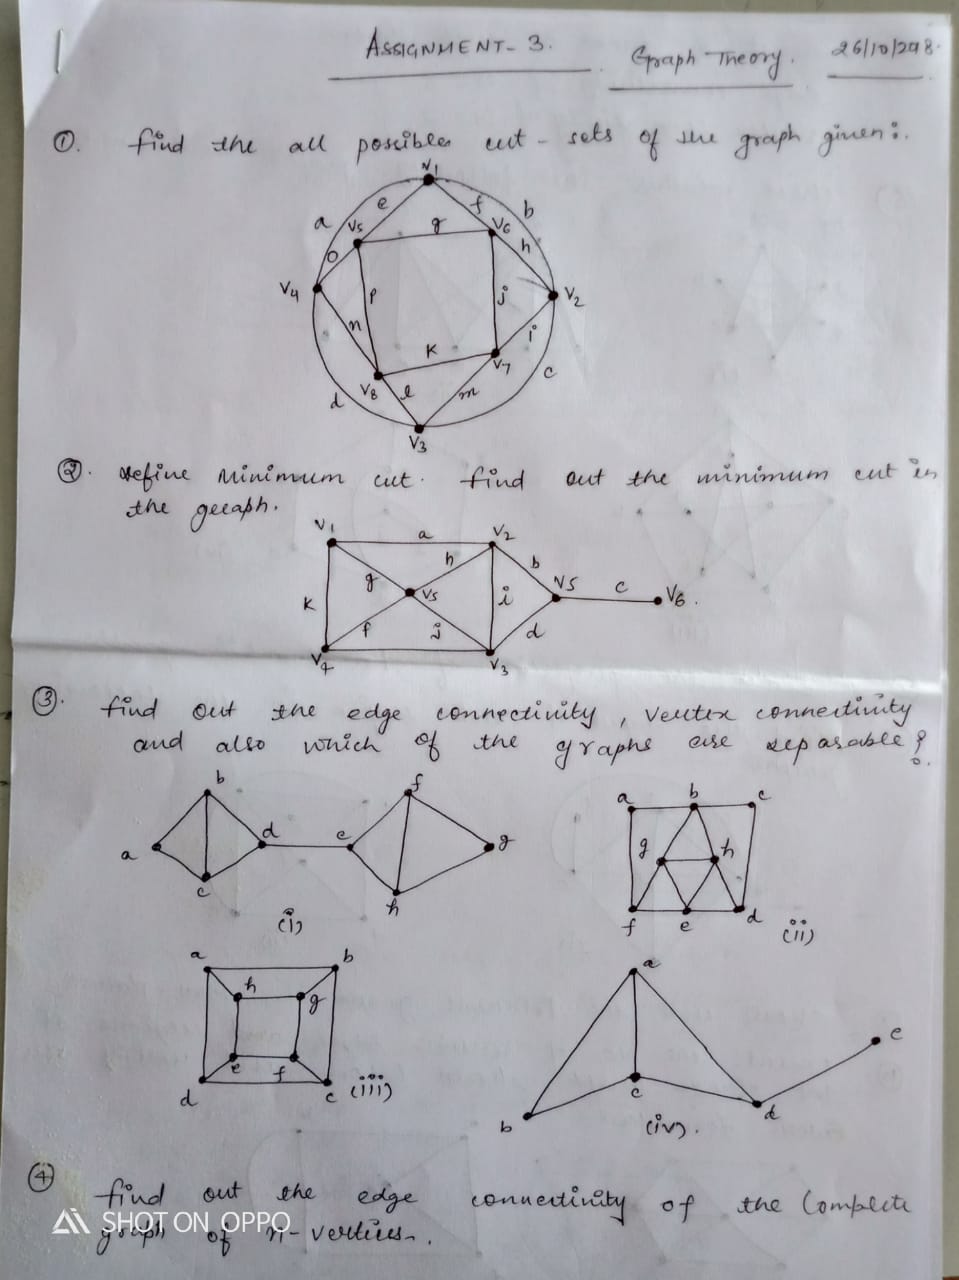 ASSIGNMENT- 3. Graph Theory.
①. find the all possible cut - sets of the graph given:.
V1
a e f b
V5 g V6
o h
V4 p j V2
n i
K V7 c
V8 l m
d
V3
②. define Minimum cut. find out the minimum cut in
the graph.
V1 a V2
g h b
K V5 i V5 c V6.
f j d
V4 V3
③. find out the edge connectivity, vertex connectivity
and also which of the graphs are separable?
b f a b c
a d e g g h
c h f e d
(i) (ii)
a b a
h g
e f e
d c (iii) c d
b (iv).
④ find out the edge connectivity of the Complete
graph of n-vertices.
SHOT ON OPPO